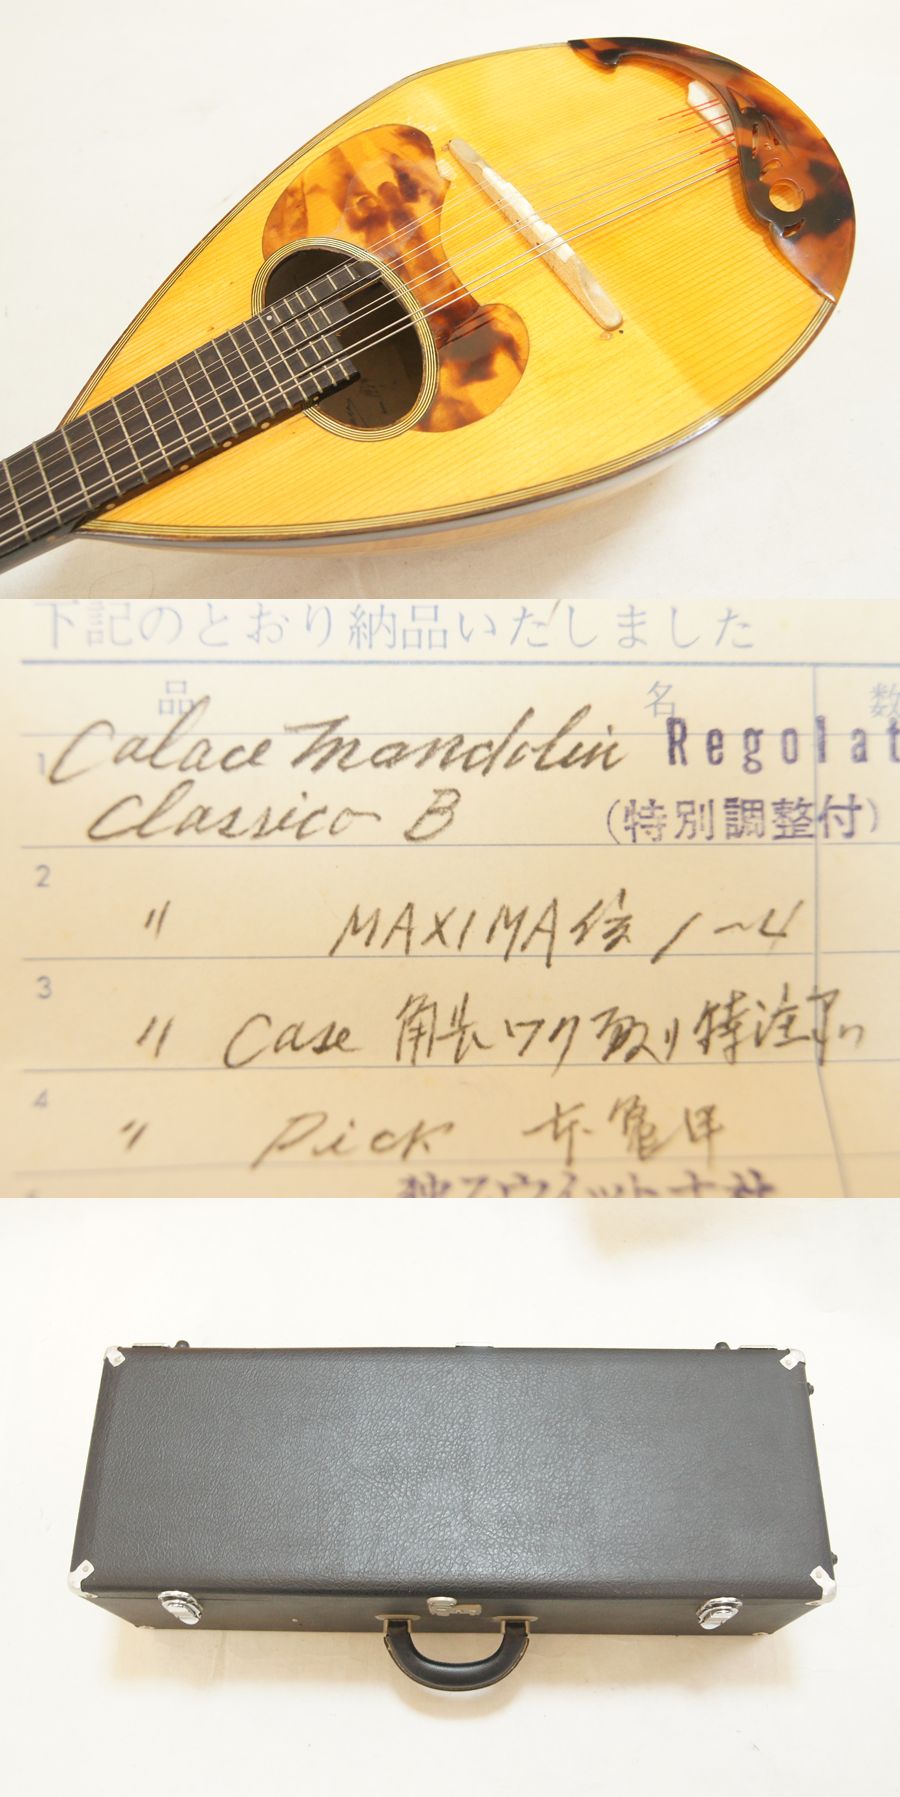 下記のとおり納品いたしました
品名 数
1 Calace Mandolin Regolat
Classico B (特別調整付)
2 〃 MAXIMA 弦 1~4
3 〃 Case 角型 ワク取り特注
4 〃 Pick 本鼈甲